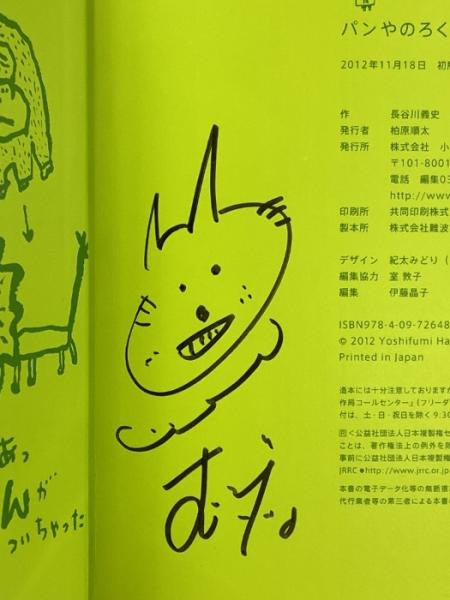 パンやのろく
2012年11月18日 初
作 長谷川義史
発行者 柏原順太
発行所 株式会社 小
〒101-8001
電話 編集03
http://www
印刷所 共同印刷株式
製本所 株式会社難波
デザイン 紀太みどり（
編集協力 室 敦子
編集 伊藤晶子
ISBN978-4-09-72648
© 2012 Yoshifumi Ha
Printed in Japan
造本には十分注意しておりますが
作局コールセンター」（フリーダ
付は、土・日・祝日を除く9:30
Ⓡ<公益社団法人日本複製権セ
ことは、著作権法上の例外を除
事前に公益社団法人日本複製権
JRRC●http://www.jrrc.or.jp
本書の電子データ化等の無断複
代行業者等の第三者による本書
あっ
んが
ついちゃった